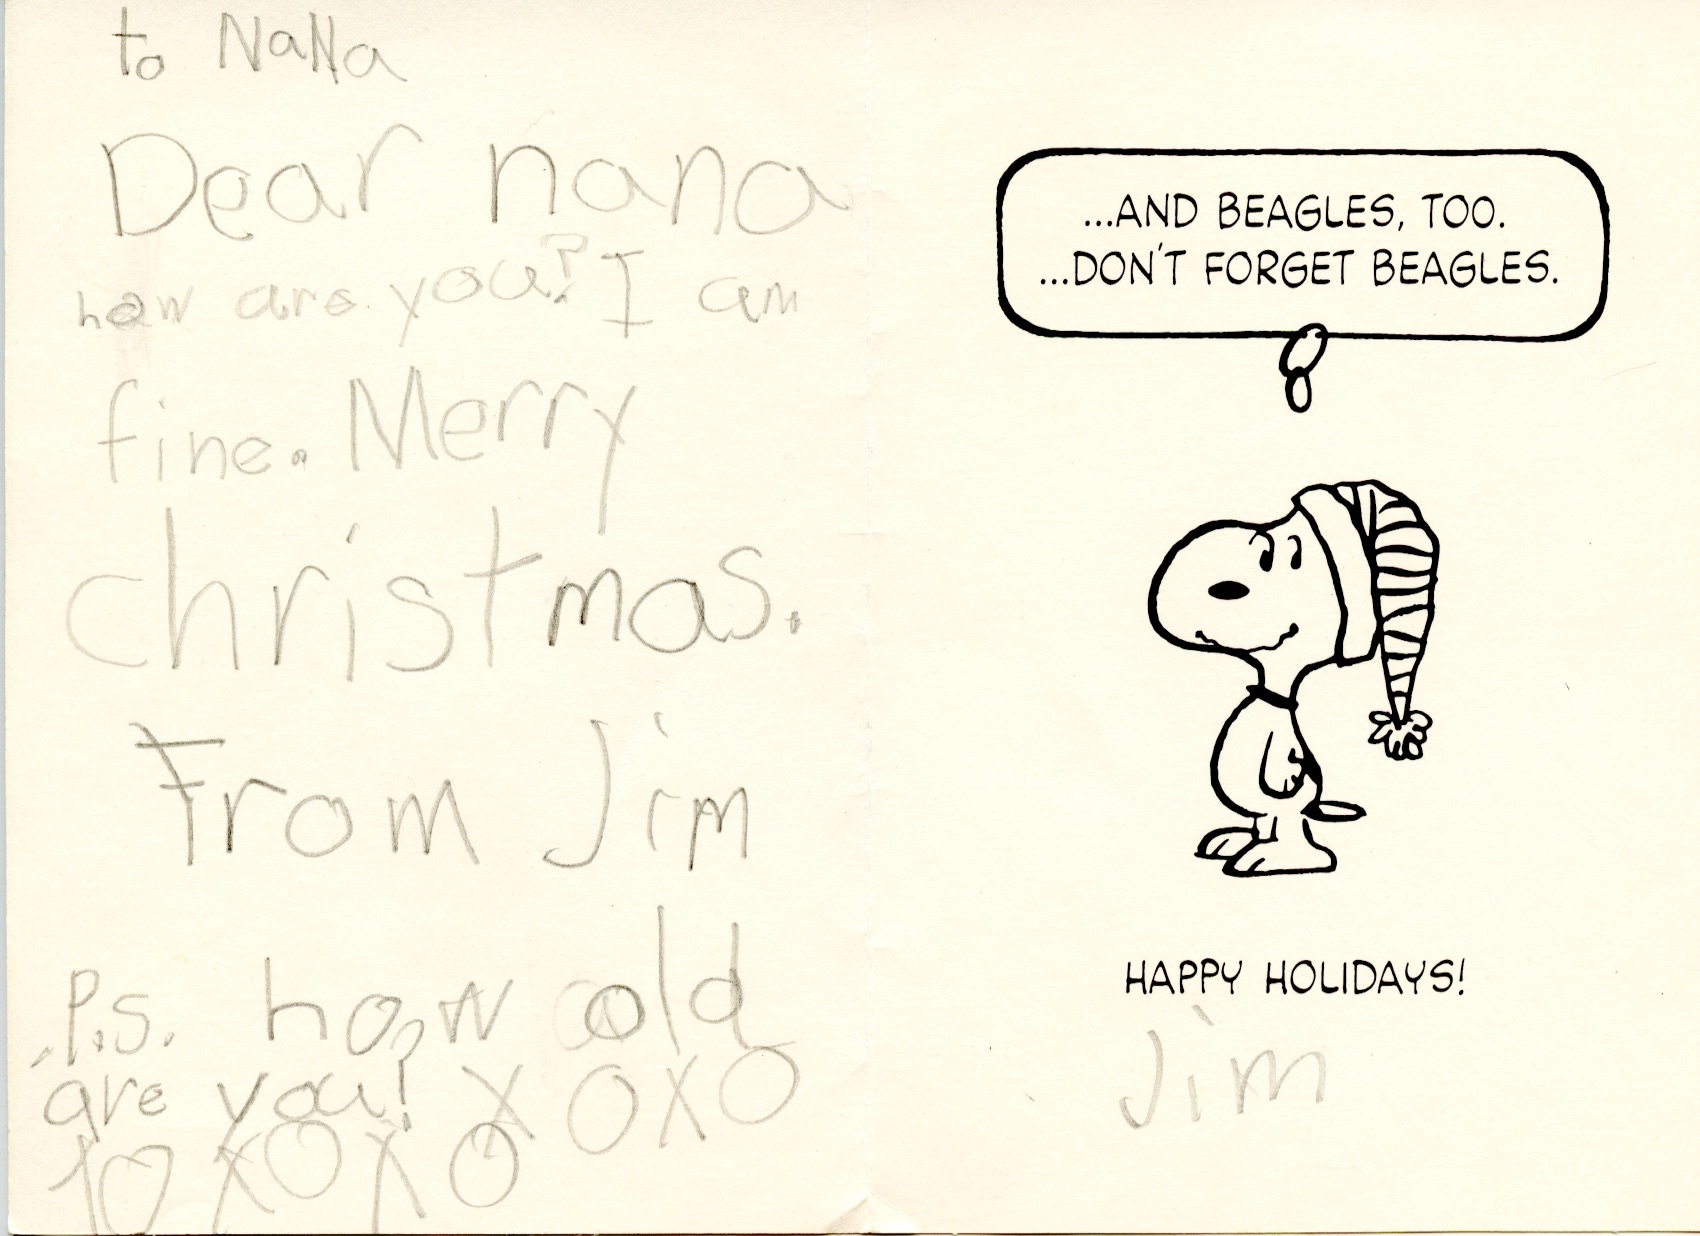 to NaNa
Dear nana
how are you? I am
fine. Merry
christmas.
From Jim
P.S. how old
are you? XOXO
XOXOXO
...AND BEAGLES, TOO.
...DON'T FORGET BEAGLES.
HAPPY HOLIDAYS!
Jim